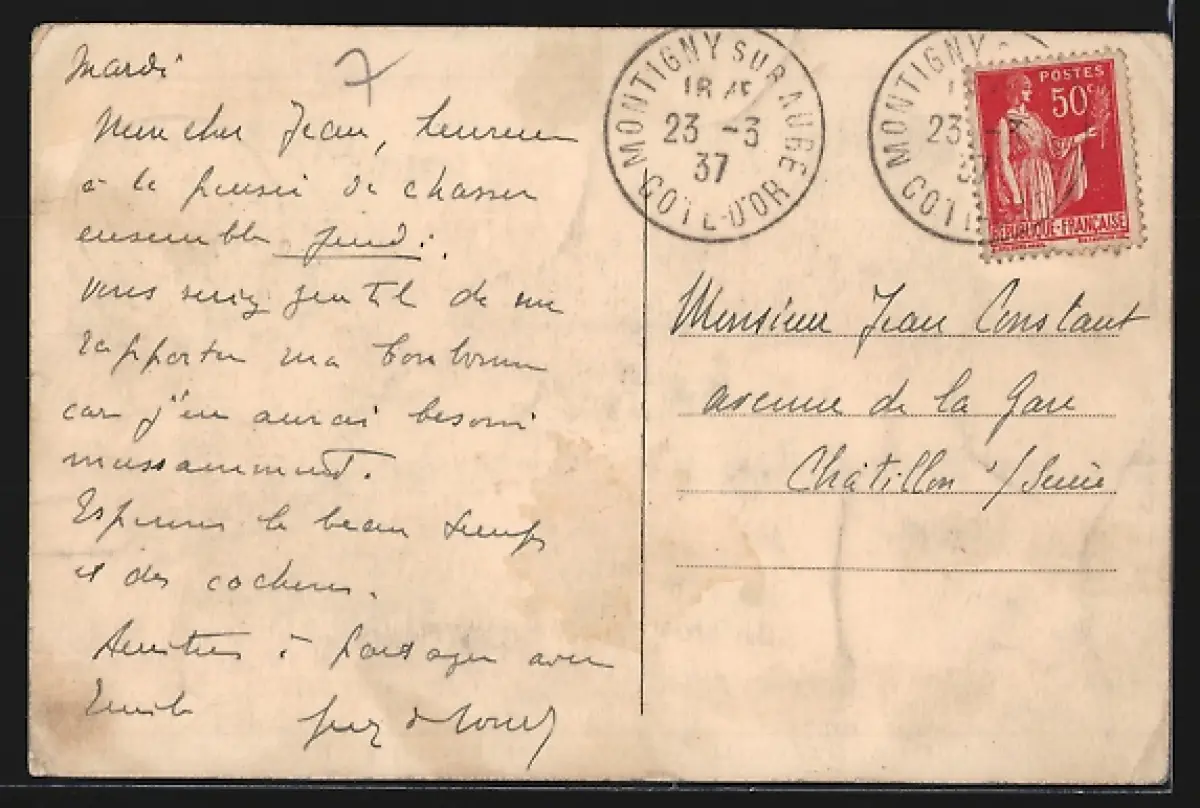 Mardi
Mon cher Jean, heureux
à la pensée de chasser
ensemble jeudi.
Vous seriez gentil de me
rapporter ma bonbonne
car j'en aurai besoin
incessamment.
Espérons le beau temps
et des cochons.
Amitiés à partager avec
MONTIGNY SUR AUBE
18 45
23 -3
37
COTE-D'OR
MONTIGNY
23
COTE
POSTES
50c
REPUBLIQUE-FRANÇAISE
Monsieur Jean Constant
avenue de la Gare
Châtillon s/Seine